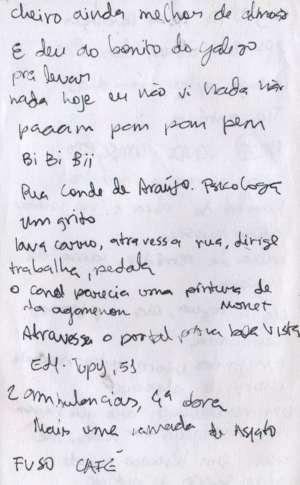 cheiro ainda melhor de almoço
E deu do bonito do galego
pra levar
nada hoje eu não vi nada não
paaam pom pom pem
Bi Bi Bii
Rua Conde de Araújo. Psicologa
um grito
lava carro, atravessa rua, dirige
trabalha, pedala
o canal parecia uma pintura de Monet
da agamenon
Atravessa o portal pra boa vista
Edf. Tupy, 51
2 ambulancias, 4ª dora
Mais uma camada de Asfalto
FUSO CAFÉ